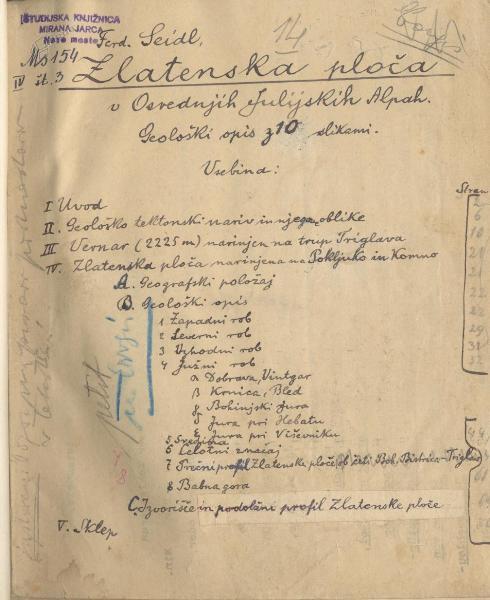 ŠTUDIJSKA KNJIŽNICA
MIRANA JARCA
Novo mesto
Ms 154
IV št. 3
14
Ferd. Seidl,
Zlatenska ploča
v Osrednjih Julijskih Alpah.
Geološki opis z 10 slikami.
Vsebina:
Stran
I Uvod
II. Geološko tektonski nariv in njega oblike
III Vernar (2225 m) narinjen na trup Triglava
IV. Zlatenska ploča narinjena na Pokljuko in Komno
A. Geografski položaj
B. Geološki opis
1 Zapadni rob
2 Severni rob
3 Vzhodni rob
4 Južni rob
α Dobrava, Vintgar
β Krnica, Bled
γ Bohinjski Jura
δ Jura pri Hebatu
ε Jura pri Viševniku
5 Sredina
6 Celotni značaj
7 Prečni profil Zlatenske ploče ob črti Boh. Bistrica-Triglav
8 Babna gora
C. Izvorišče in podolžni profil Zlatenske ploče
V. Sklep
petit